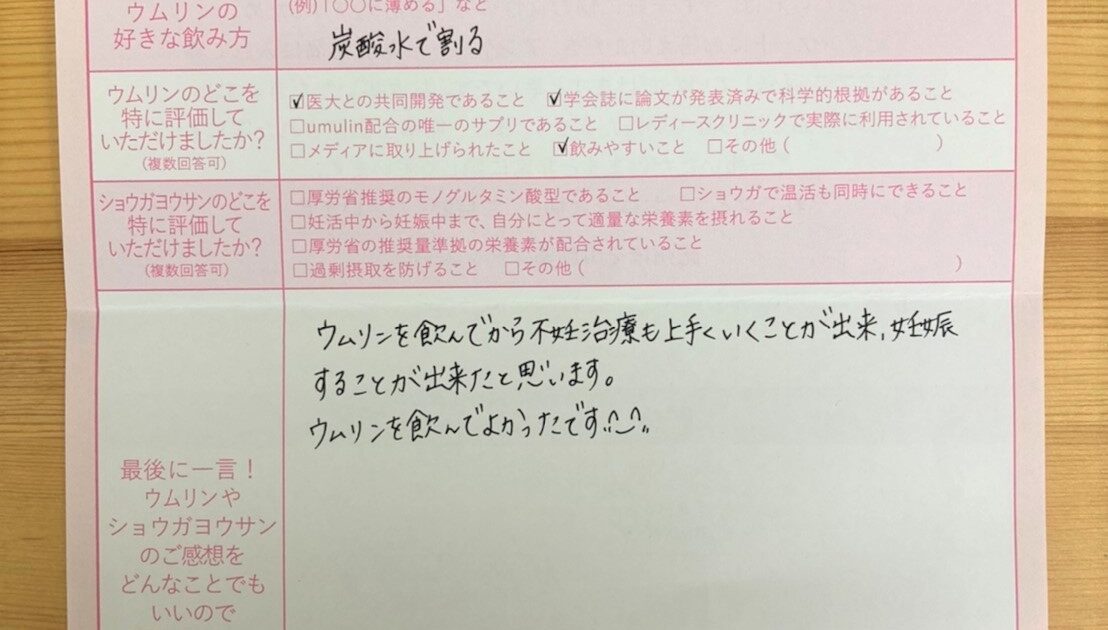 ウムリンの
好きな飲み方
(例)「〇〇に薄める」など
炭酸水で割る
ウムリンのどこを
特に評価して
いただけましたか?
(複数回答可)
☑医大との共同開発であること ☑学会誌に論文が発表済みで科学的根拠があること
□umulin配合の唯一のサプリであること □レディースクリニックで実際に利用されていること
□メディアに取り上げられたこと ☑飲みやすいこと □その他( )
ショウガヨウサンのどこを
特に評価して
いただけましたか?
(複数回答可)
□厚労省推奨のモノグルタミン酸型であること □ショウガで温活も同時にできること
□妊活中から妊娠中まで、自分にとって適量な栄養素を摂れること
□厚労省の推奨量準拠の栄養素が配合されていること
□過剰摂取を防げること □その他( )
最後に一言!
ウムリンや
ショウガヨウサン
のご感想を
どんなことでも
いいので
ウムリンを飲んでから不妊治療も上手くいくことが出来、妊娠
することが出来たと思います。
ウムリンを飲んでよかったです